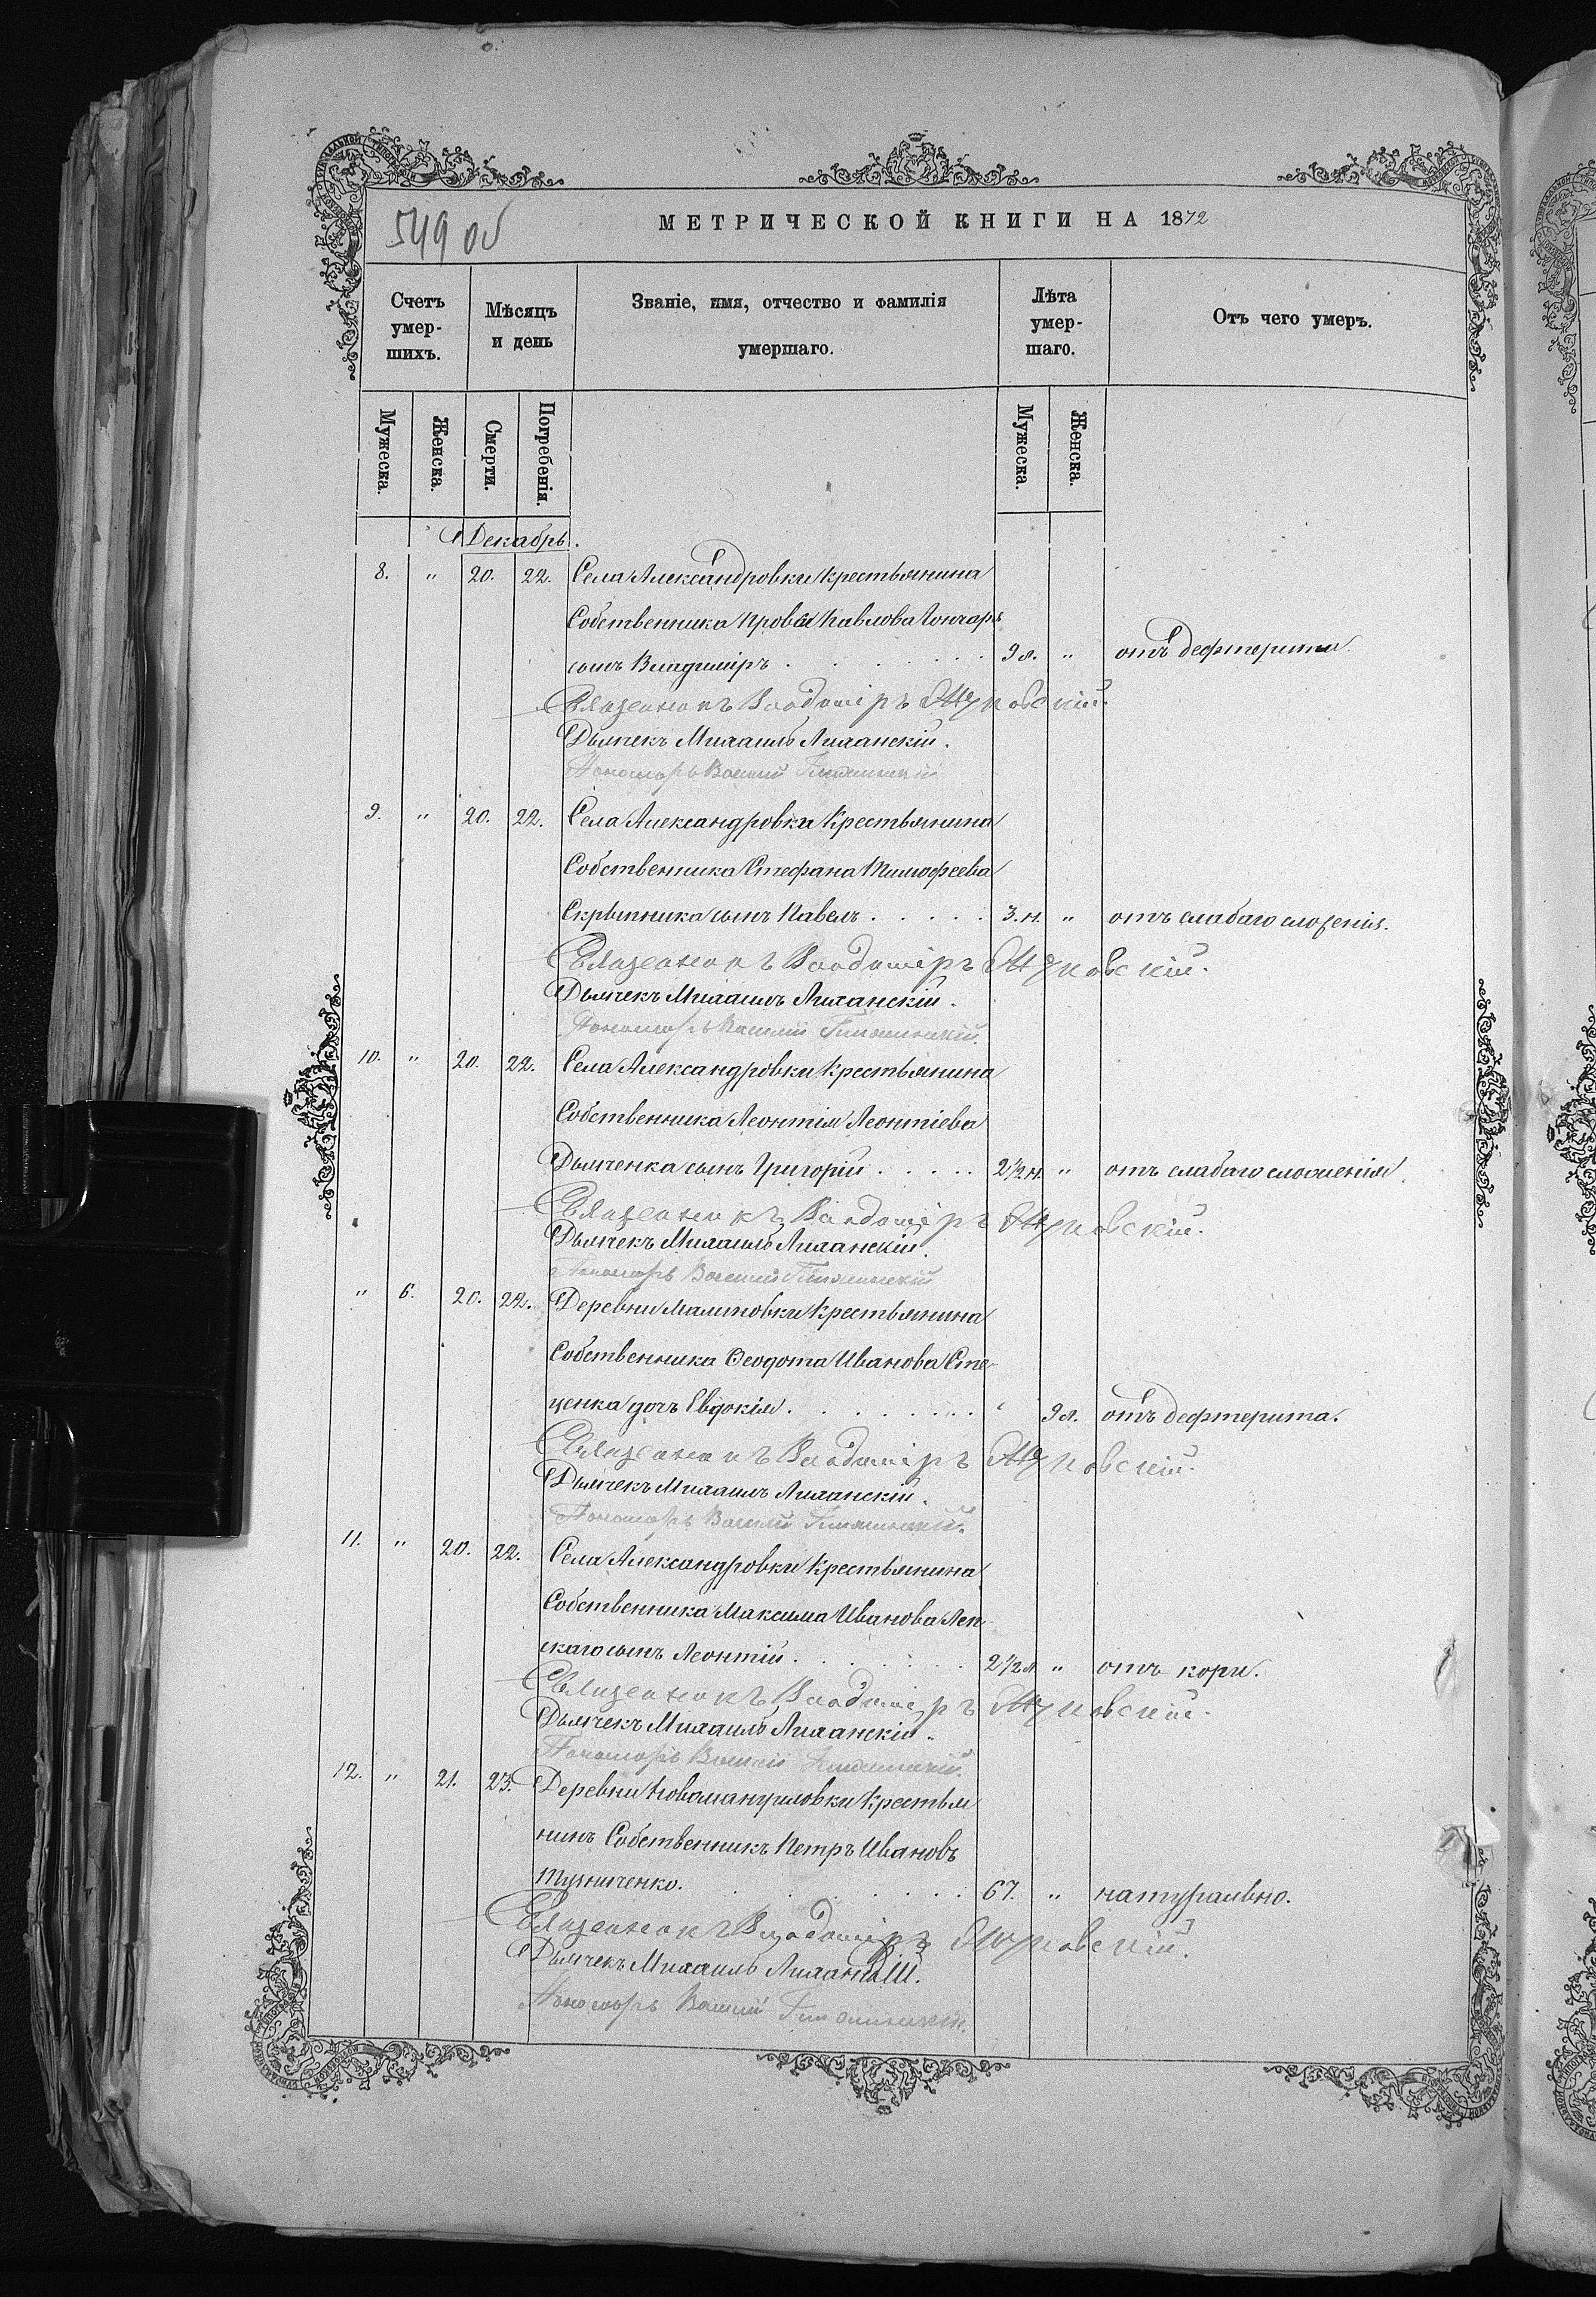 549 об
МЕТРИЧЕСКОЙ КНИГИ НА 1872
Счетъ умер-шихъ.
Мѣсяцъ и день
Званіе, имя, отчество и фамилія умершаго.
Лѣта умер-шаго.
Отъ чего умеръ.
Мужеска.
Женска.
Смерти.
Погребенія.
Мужеска.
Женска.
Декабрь.
8. " 20. 22. Села Александровки крестьянина
Собственника Прова Павлова Гончаръ
сынъ Владиміръ . . . . . . . 9 л. " отъ дефтерита.
Священникъ Владиміръ Жуковскій.
Дьячекъ Михаилъ Лиханскій.
Пономарь Василій
9. " 20. 22. Села Александровки крестьянина
Собственника Стефана Тимофеева
Скрыпника сынъ Павелъ . . . . . 3. н. " отъ слабаго сложенія.
Священникъ Владиміръ Жуковскій.
Дьячекъ Михаилъ Лиханскій.
Пономарь Василій
10. " 20. 22. Села Александровки крестьянина
Собственника Леонтія Леонтіева
Дьяченка сынъ Григорій . . . . . 2½ н. " отъ слабаго сложенія.
Священникъ Владиміръ Жуковскій.
Дьячекъ Михаилъ Лиханскій.
Пономарь Василій
" 6. 20. 22. Деревни Малиновки крестьянина
Собственника Ѳеодота Иванова Сте-
ценка дочь Евдокія . . . . . . . " 9 л. отъ дефтерита.
Священникъ Владиміръ Жуковскій.
Дьячекъ Михаилъ Лиханскій.
Пономарь Василій
11. " 20. 22. Села Александровки крестьянина
Собственника Максима Иванова Леп-
скаго сынъ Леонтій . . . . . . . 2½ л. " отъ кори.
Священникъ Владиміръ Жуковскій.
Дьячекъ Михаилъ Лиханскій.
Пономарь Василій
12. " 21. 23. Деревни Новомануиловки крестья
нинъ Собственникъ Петръ Ивановъ
. . . . . . . 67. " натурально.
Священникъ Владиміръ Жуковскій.
Дьячекъ Михаилъ Лиханскій.
Пономарь Василій